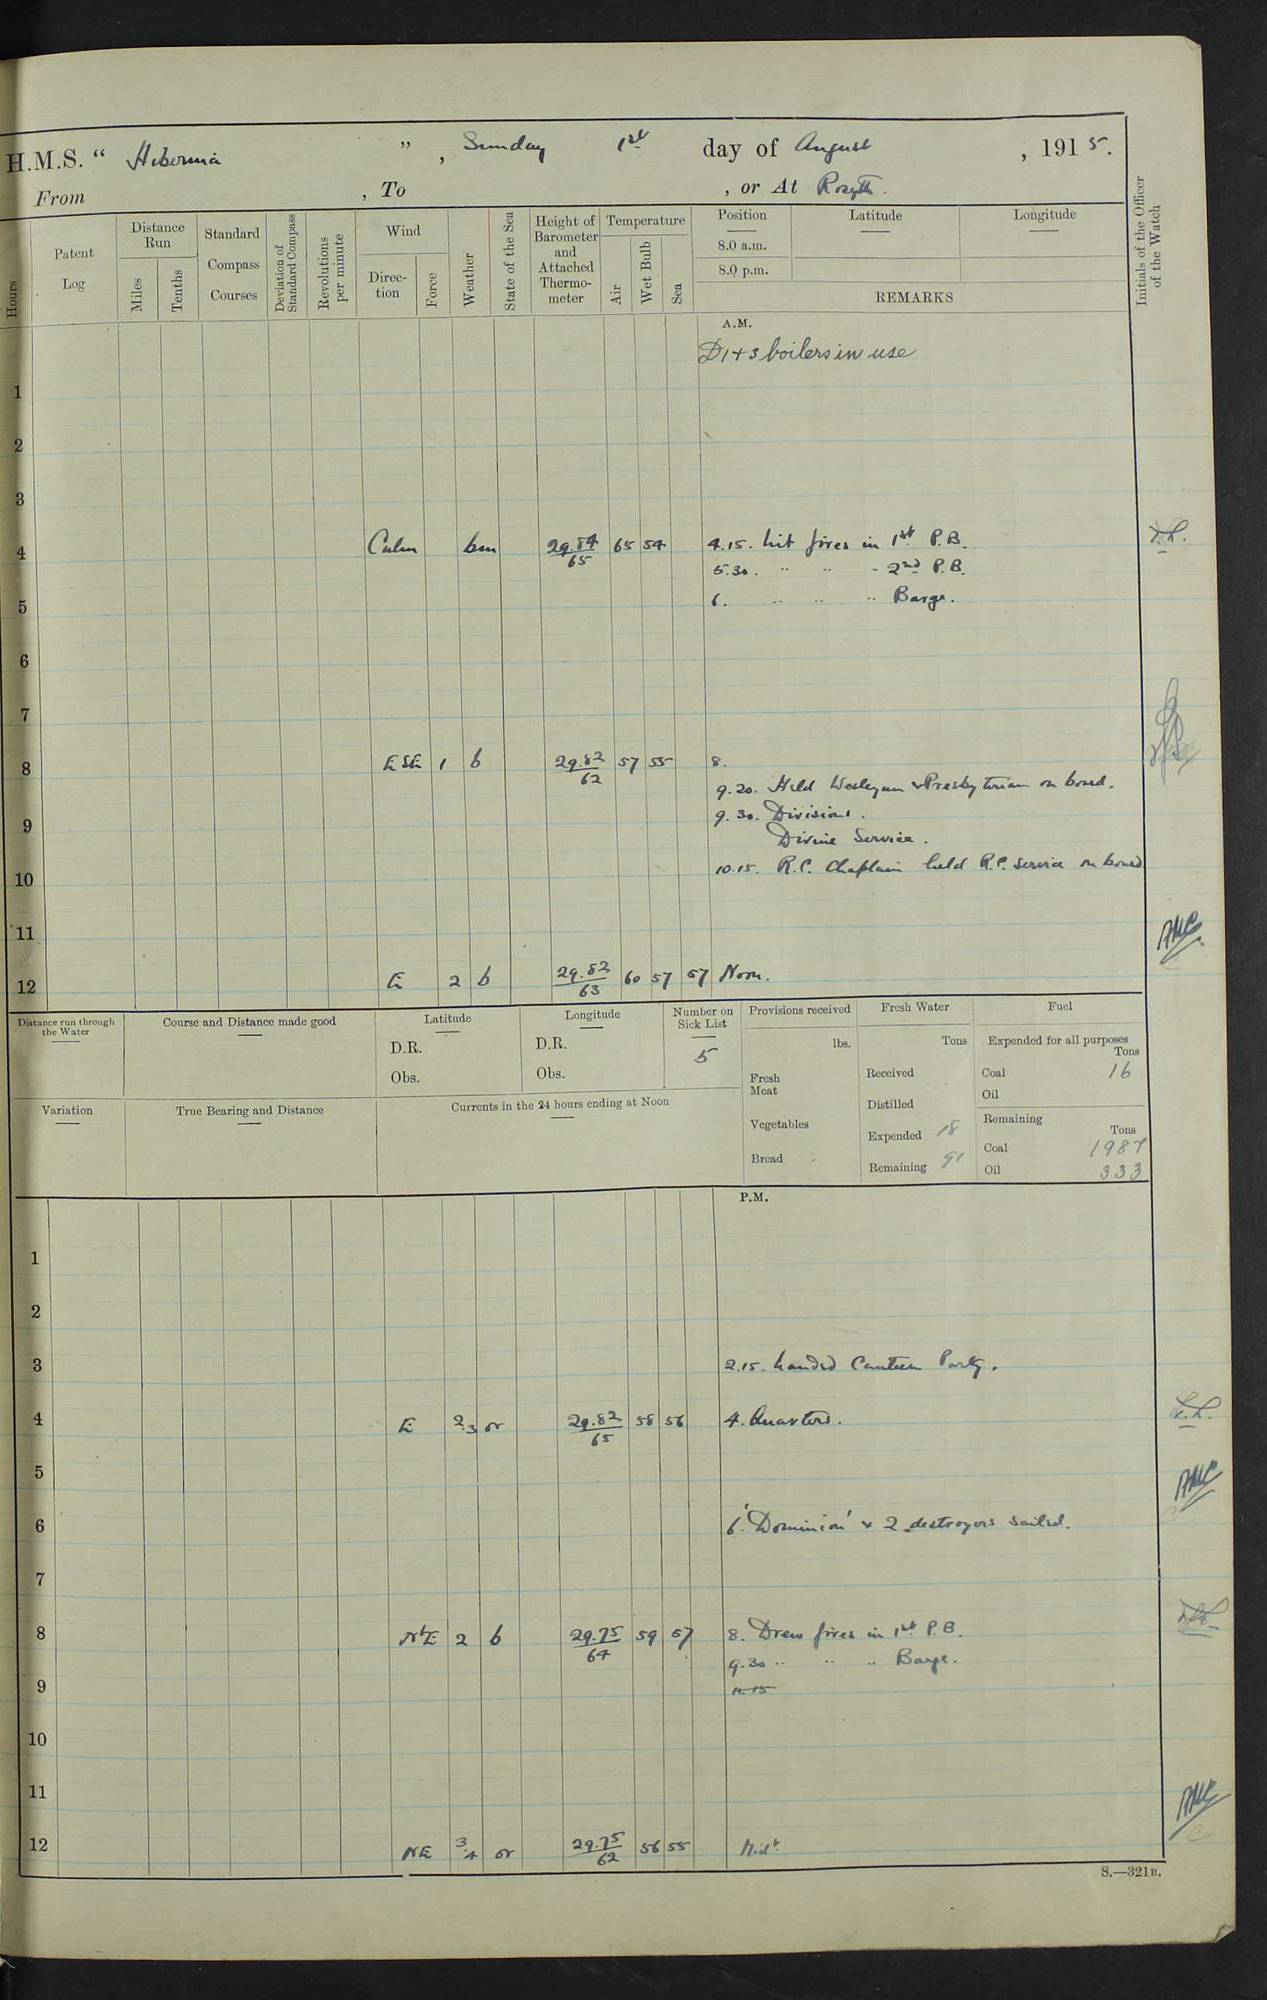 H.M.S. " Hibernia ", Sunday 1st day of August, 1915.
From , To , or At Rosyth.
Hours
Patent Log
Distance Run
Miles
Tenths
Standard Compass Courses
Deviation of Standard Compass
Revolutions per minute
Wind
Direction
Force
Weather
State of the Sea
Height of Barometer and Attached Thermometer
Temperature
Air
Wet Bulb
Sea
Position
Latitude
Longitude
8.0 a.m.
8.0 p.m.
REMARKS
Initials of the Officer of the Watch
A.M.
D1+3 boilers in use
1
2
3
4 Calm bm 29.84/65 65 54 4.15. Lit fires in 1st P.B.
5.30. " " " 2nd P.B.
5 6. " " " Barge.
6
7
8 ESE 1 b 29.82/62 57 55 8.
9.20. Held Wesleyan & Presbyterian on board.
9 9.30. Divisions.
Divine Service.
10 10.15. R.C. Chaplain held R.C. service on board
11
12 E 2 b 29.82/63 60 57 57 Noon.
Distance run through the Water
Course and Distance made good
Latitude
D.R.
Obs.
Longitude
D.R.
Obs.
Number on Sick List
5
Provisions received
lbs.
Fresh Meat
Vegetables
Bread
Fresh Water
Tons
Received
Distilled
Expended 18
Remaining 91
Fuel
Expended for all purposes
Tons
Coal 16
Oil
Remaining
Tons
Coal 1987
Oil 333
Variation
True Bearing and Distance
Currents in the 24 hours ending at Noon
P.M.
1
2
3 2.15. Landed Canteen Party.
4 E 2.3 or 29.82/65 58 56 4. Quarters.
5
6 6. 'Dominion' & 2 destroyers sailed.
7
8 NbE 2 b 29.75/64 59 57 8. Drew fires in 1st P.B.
9.30 " " " Barge.
9 11.15
10
11
12 NE 3.4 or 29.75/62 56 55 Midt
S.—321B.